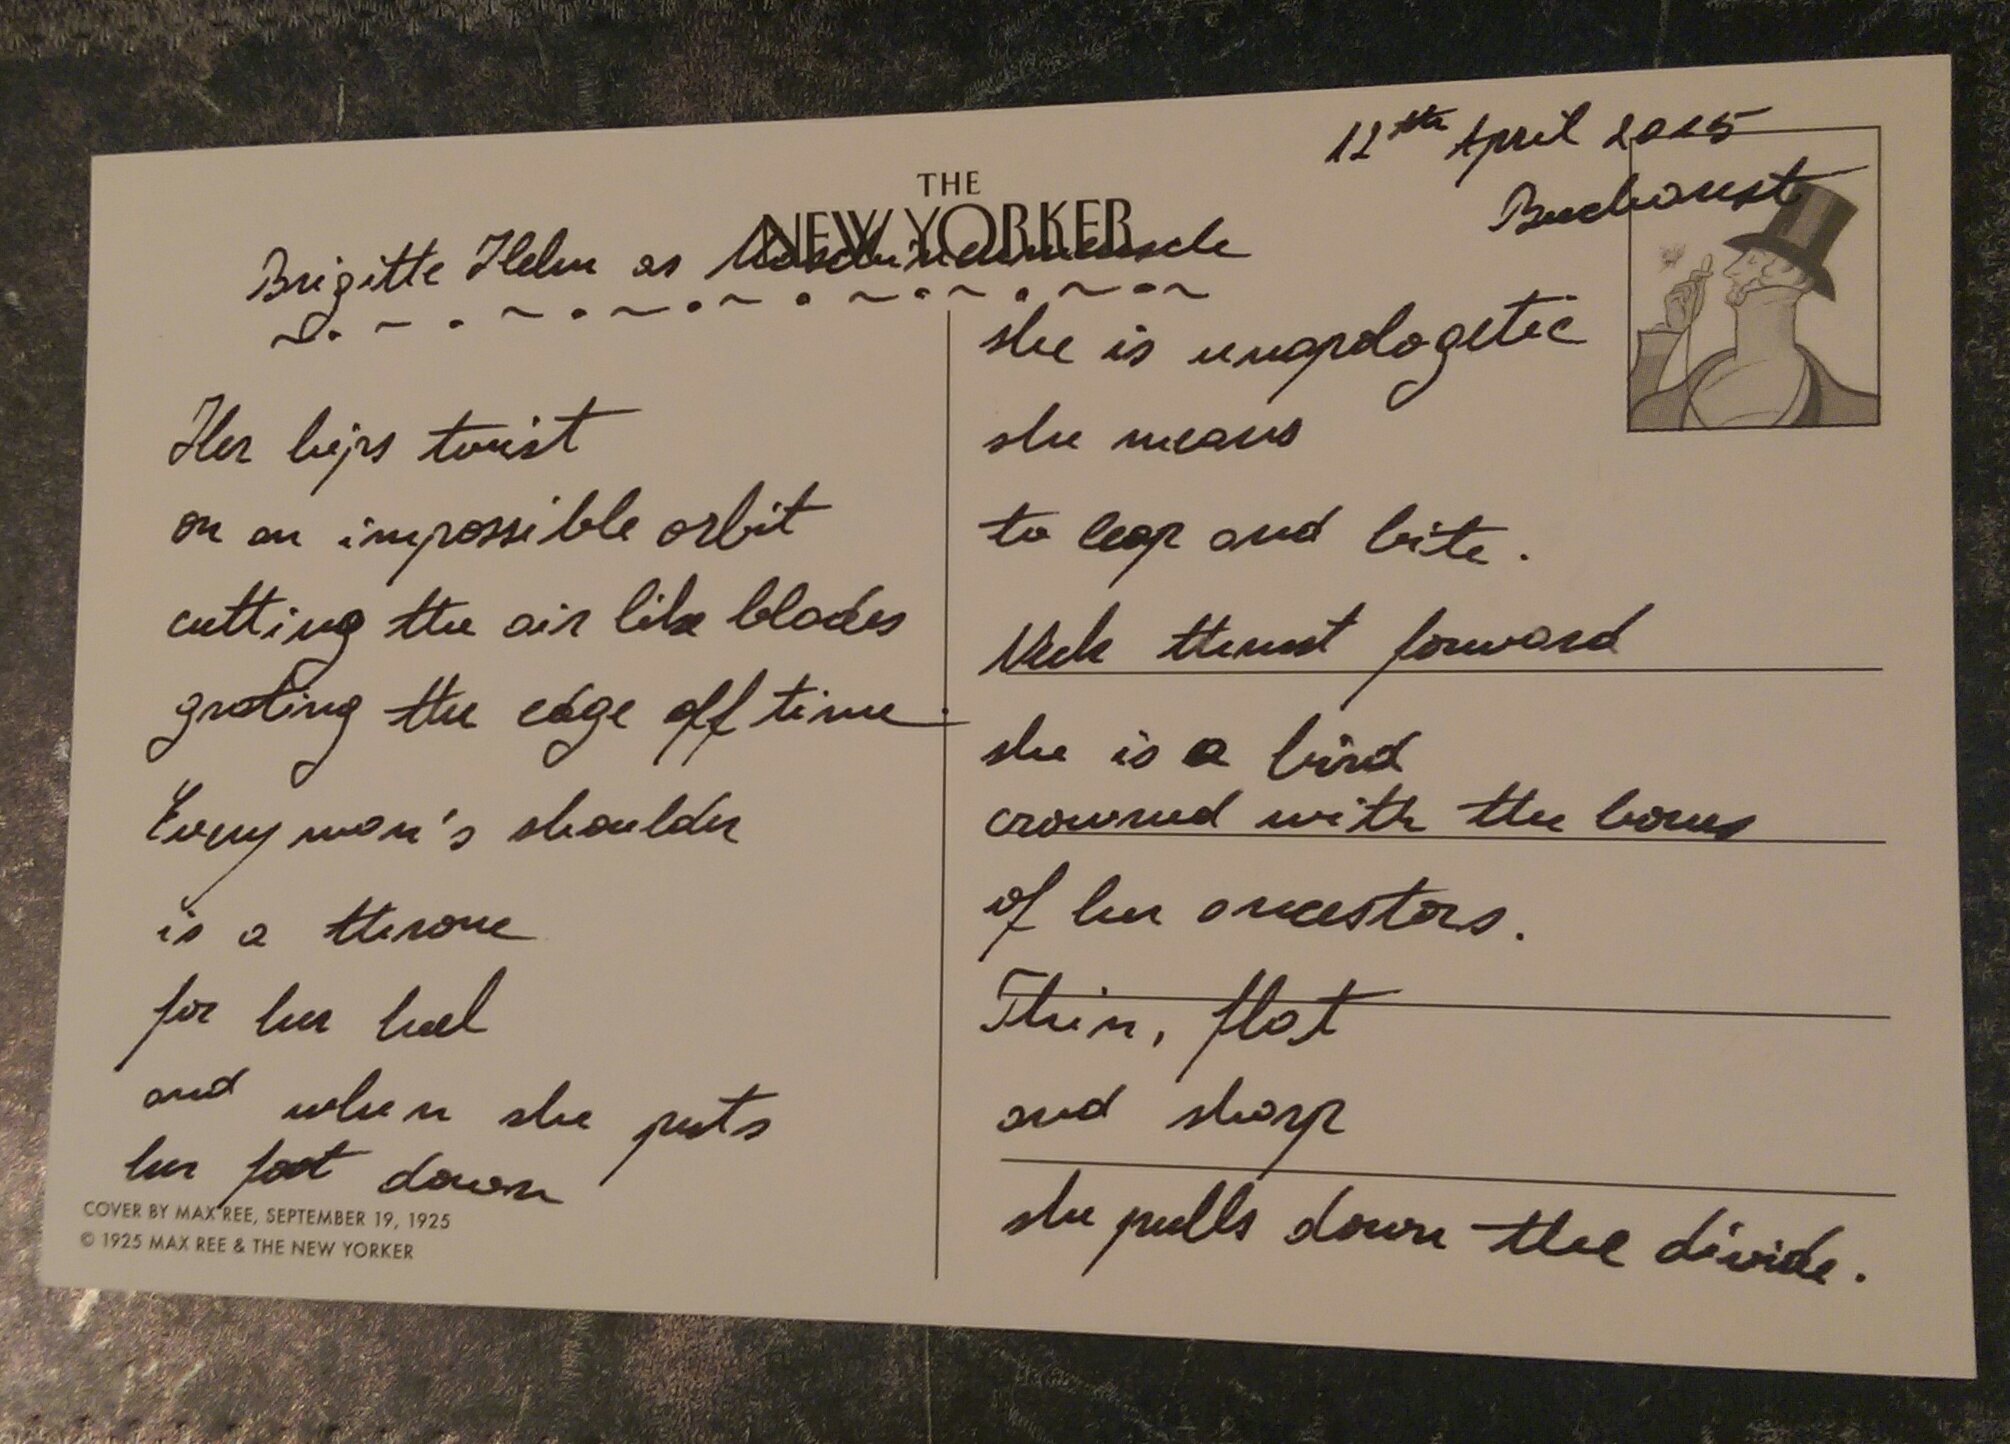 12th April 2015
Bucharest
THE
NEW YORKER
Brigitte Helm as Maschinenmensch
Her hips twist
on an impossible orbit
cutting the air like blades
grating the edge off time.
Every man's shoulder
is a throne
for her heel
and when she puts
her foot down
COVER BY MAX REE, SEPTEMBER 19, 1925
© 1925 MAX REE & THE NEW YORKER
she is unapologetic
she means
to leap and bite.
Neck thrust forward
she is a bird
crowned with the bones
of her ancestors.
Thin, flat
and sharp
she pulls down the divide.